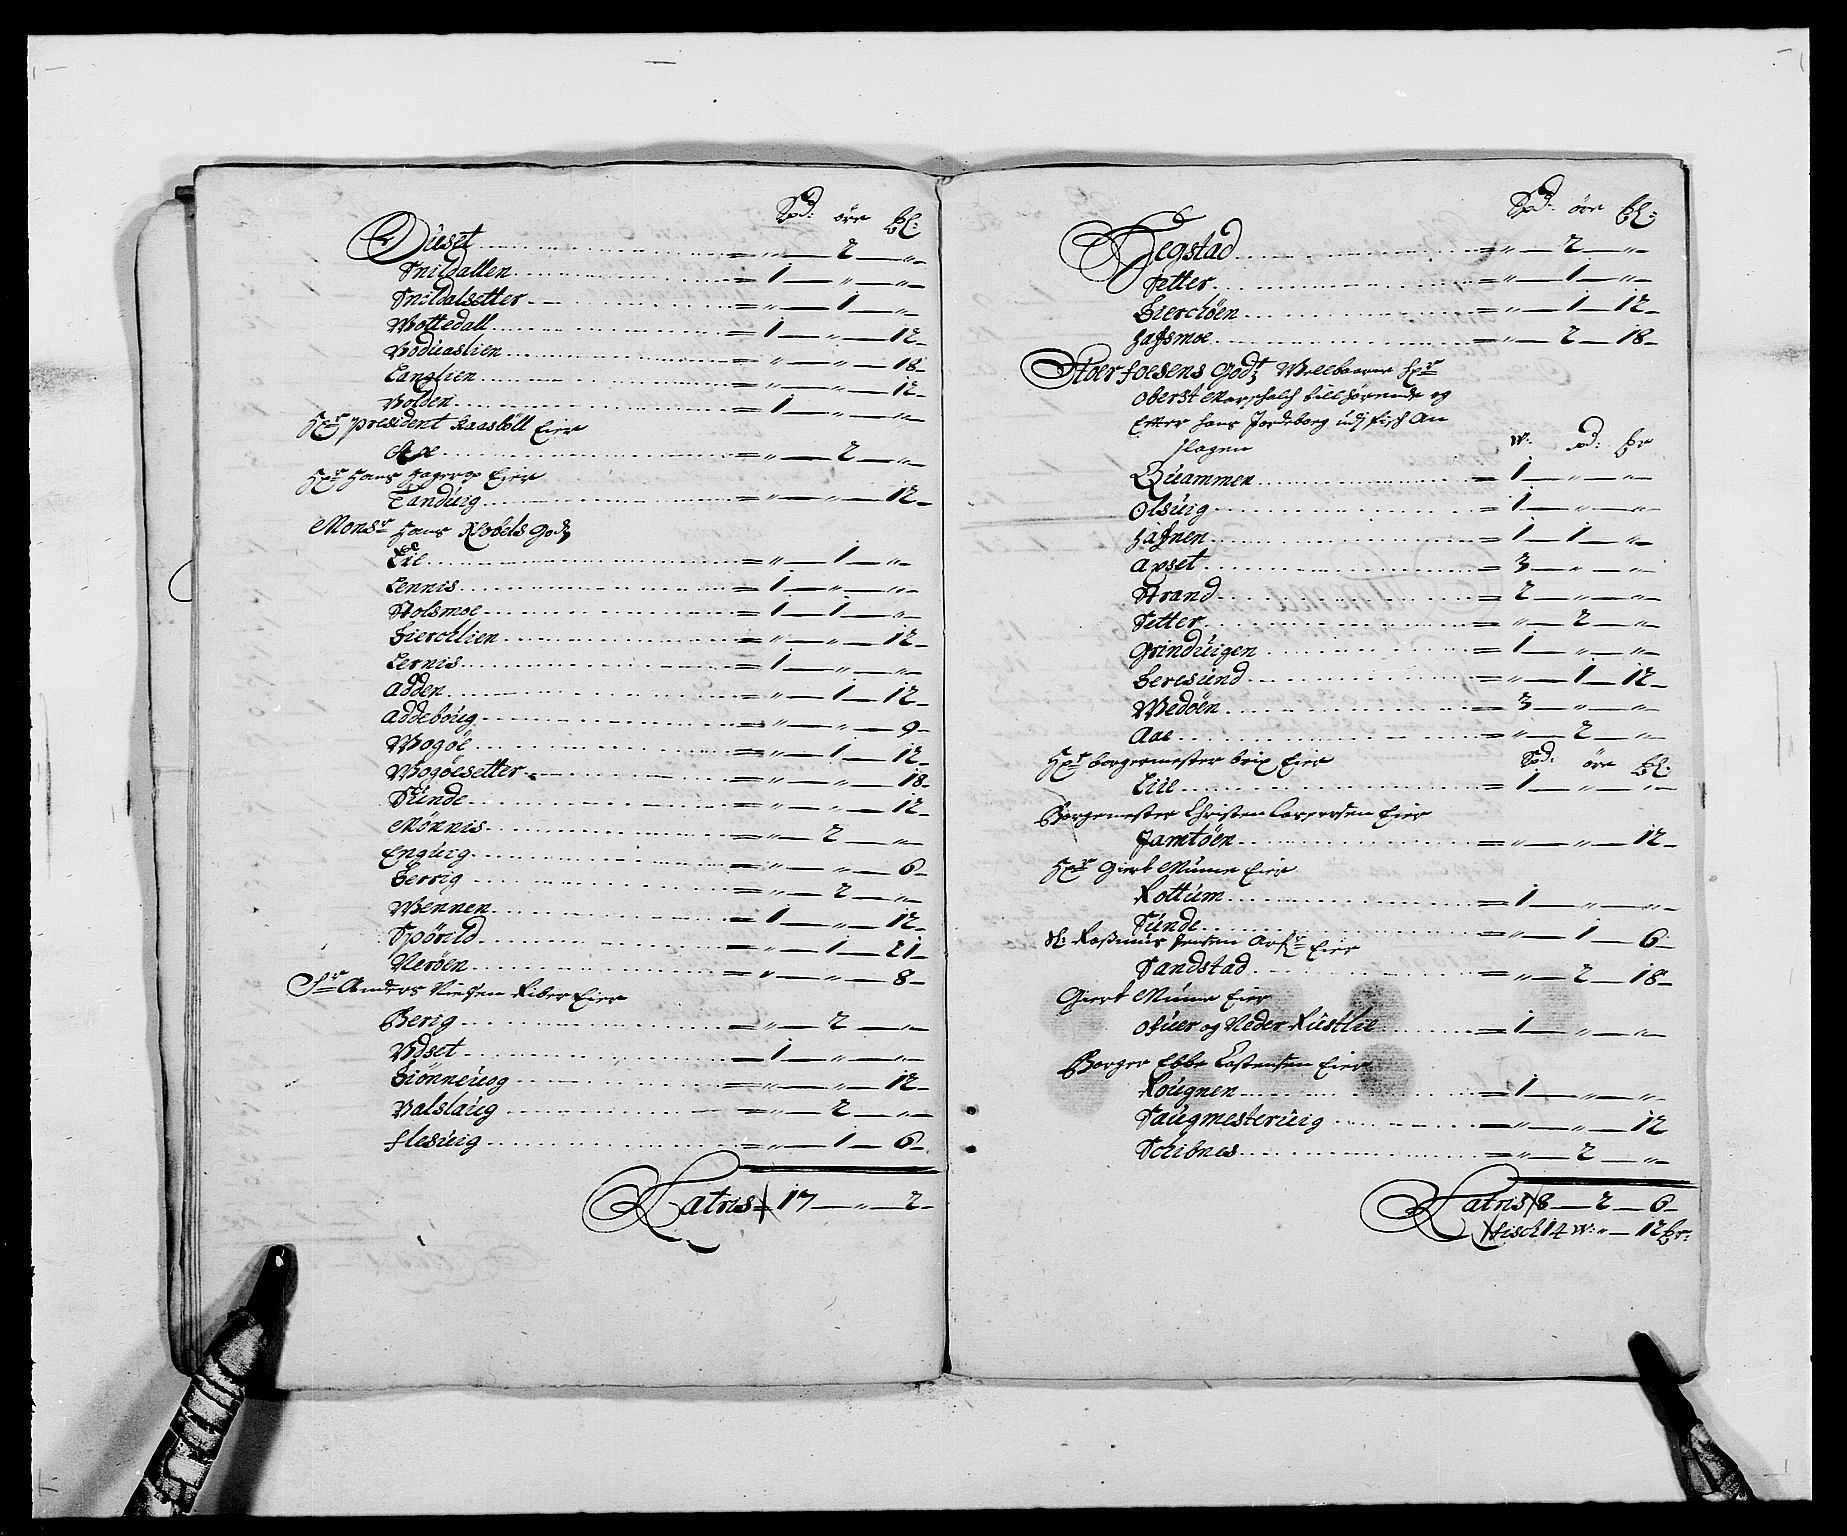 Spd: öre El:
Düeset = „ — 2 — „
Snildallen = 1 — „ — „
Snildalsetter = „ — 1 — „
Wottedall = 1 — „ — 12
Woduaslien = „ — „ — 18
Langlien = „ — „ — 12
Wolden = 1 — „ — „
Hr president Eier
Axe = „ — 2 — „
Hr Hans Hagerop Eier
Tanduig = „ — „ — 12
Monsr Hans Nobels God
Lie = „ — 1 — „
Lennis = 1 — „ — „
Stolsmoe = 1 — 1 — „
Bierchlien = „ — „ — 12
Lernis = 1 — „ — „
Adden = „ — 1 — 12
Addeboug = „ — „ — 9
Wogöe = „ — 1 — 12
Wogöesetter = „ — „ — 18
Sünde = „ — „ — 12
Mönnis = „ — 2 — „
Enguig = „ — „ — 6
Berrig = „ — 2 — „
Wennen = 1 — „ — 12
Spörild = „ — 1 — 21
Neröen = „ — „ — 8
Sr Anders Nielsen Riber Eier
Berig = „ — 2 — „
Wdset = 1 — „ — „
Biönneuog = „ — „ — 12
Walslaug = „ — 2 — „
Flesuig = „ — 1 — 6
Latris 17 — „ — 2
Spd: öre El:
Hegstad = „ — 2 — „
Setter = „ — 1 — „
Bierchöen = „ — 1 — 12
Hafsmoe = „ — 2 — 18
Stoerfoesens Godz Welbaarne Hr
Oberst Marschalch tillhörende og
Efter hans Jordebog udj fisch An
slagen W: pd: Er
Quammen = 1 — „ — „
Olsuig = 1 — „ — „
Hafnen = 1 — 1 — „
Axset = 3 — „ — „
Strand = 2 — „ — „
Setter = „ — 2 — „
Grinduigen = 1 — „ — „
Beresund = „ — 1 — 12
Wedöen = 3 — „ — „
Aae = „ — 2 — „
Hr borgermester brix Eier Spd: öre El:
Lill = 1 — „ — „
Borgemester Christen Caspersen Eier
Jamtöen = „ — „ — 12
Hr Giert Mune Eier
Rottum = 1 — „ — „
Sünde = „ — 1 — 6
Sl: Rasmus Jensen Arfr Eier
Sandstad = „ — 2 — 18
Giert Mune Eier
Ofuer og Neder Rustlie = 1 — „ — „
Borger Ebbe Castensen Eier
Rougnen = 1 — „ — „
Saugmesteruig = „ — „ — 12
Schibnes = „ — 2 — „
Latris 8 — 2 — 6
fisch 14 W: „ — 12 Er: